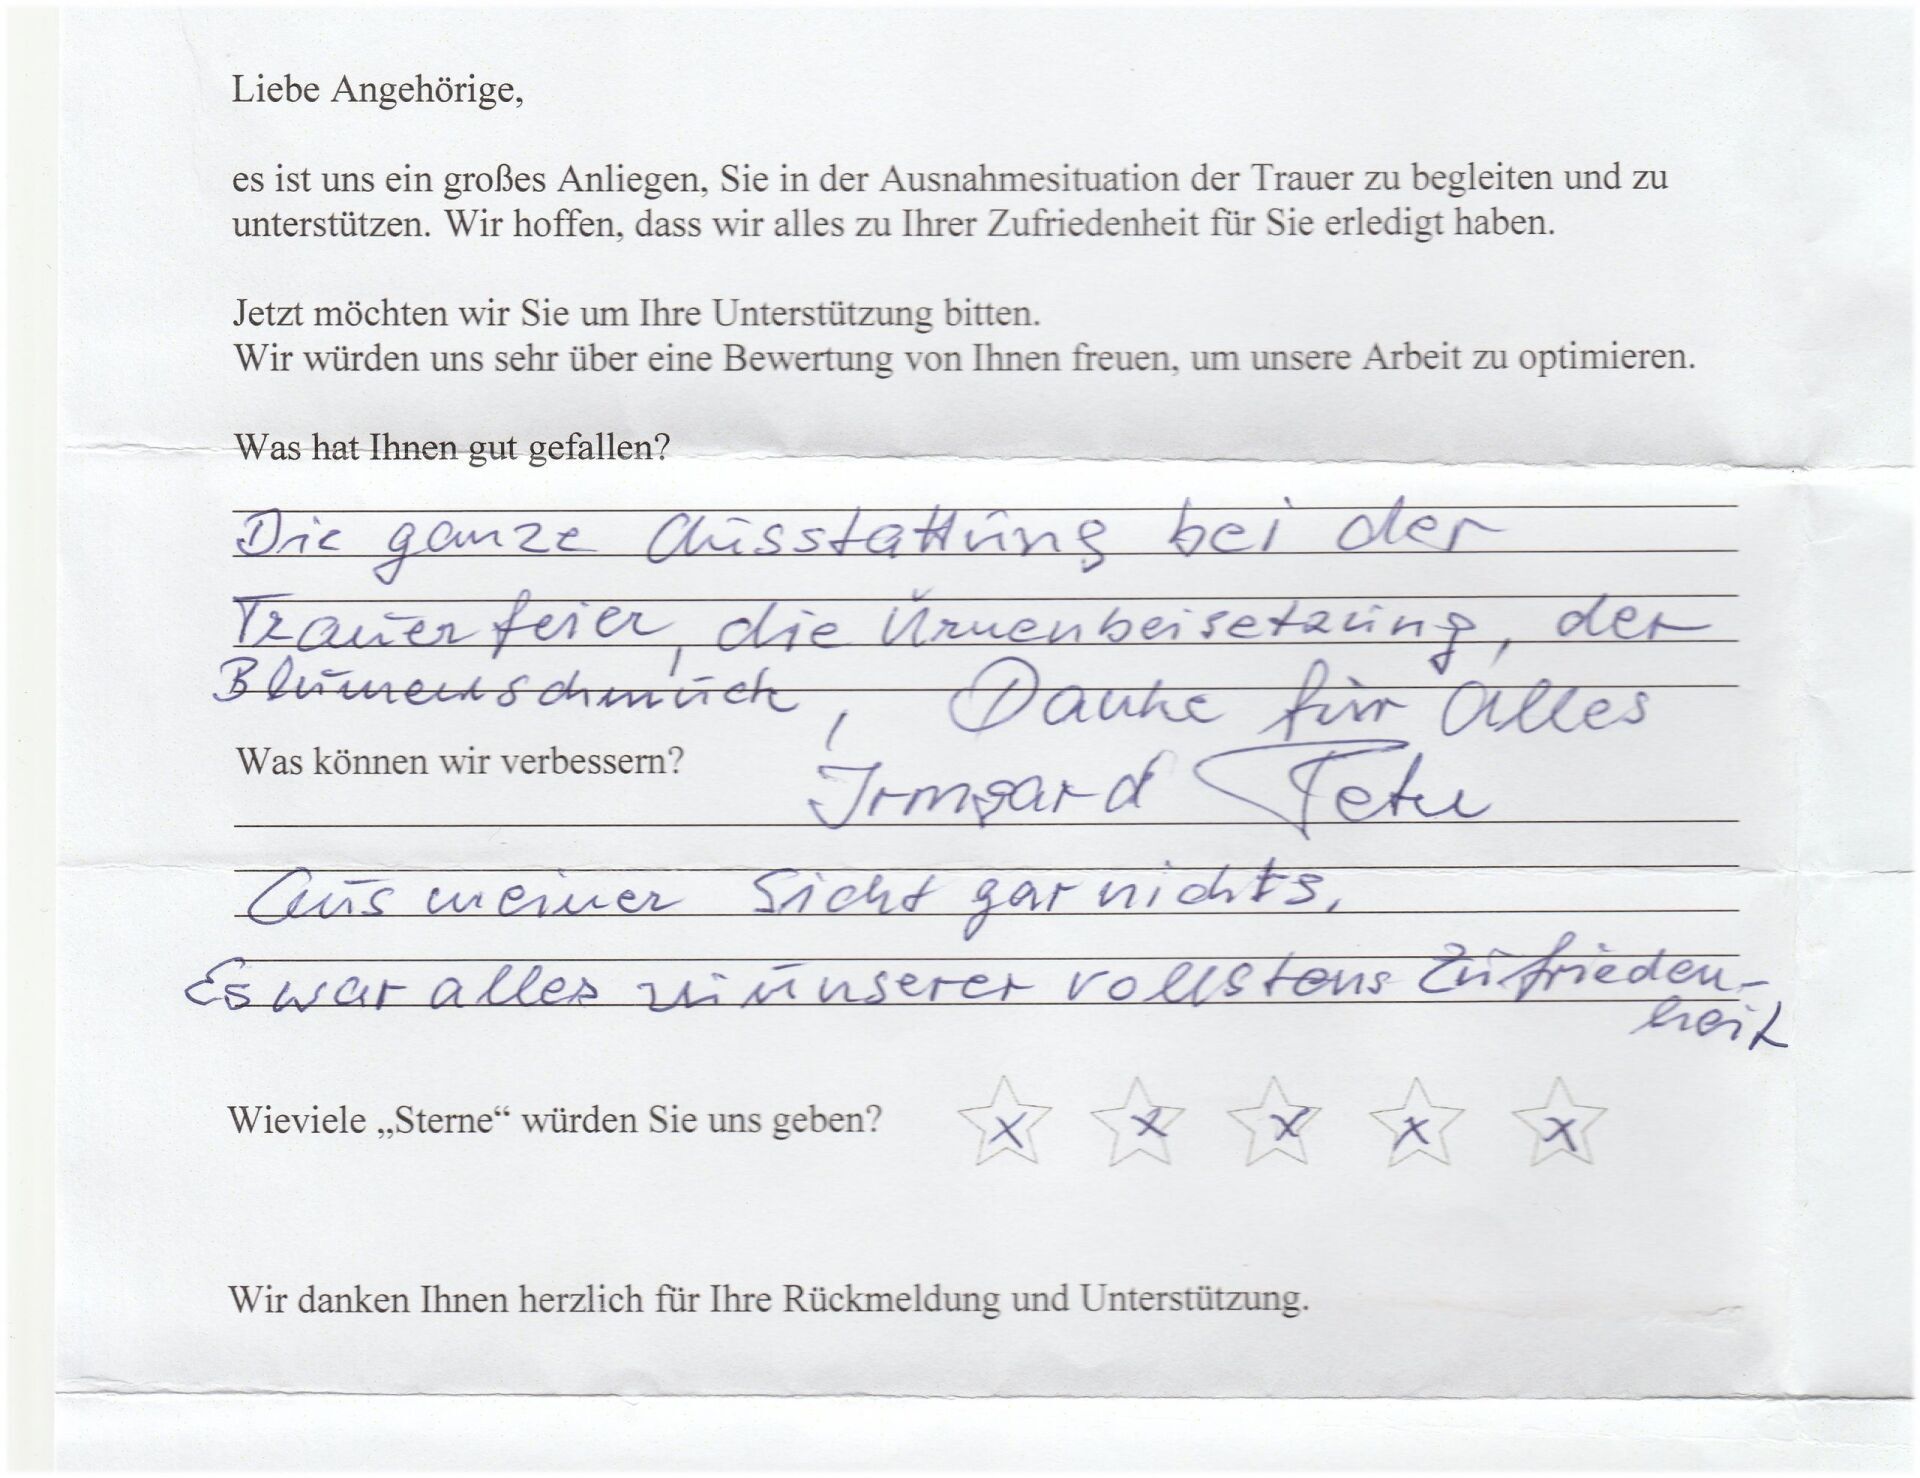 Liebe Angehörige,
es ist uns ein großes Anliegen, Sie in der Ausnahmesituation der Trauer zu begleiten und zu
unterstützen. Wir hoffen, dass wir alles zu Ihrer Zufriedenheit für Sie erledigt haben.
Jetzt möchten wir Sie um Ihre Unterstützung bitten.
Wir würden uns sehr über eine Bewertung von Ihnen freuen, um unsere Arbeit zu optimieren.
Was hat Ihnen gut gefallen?
Die ganze Ausstattung bei der
Trauerfeier, die Urnenbeisetzung, der
Blumenschmuck, Danke für Alles
Was können wir verbessern?
Irmgard
Aus meiner Sicht gar nichts.
Es war alles zu unserer vollstens Zufrieden-
heit
Wieviele „Sterne“ würden Sie uns geben? x x x x x
Wir danken Ihnen herzlich für Ihre Rückmeldung und Unterstützung.